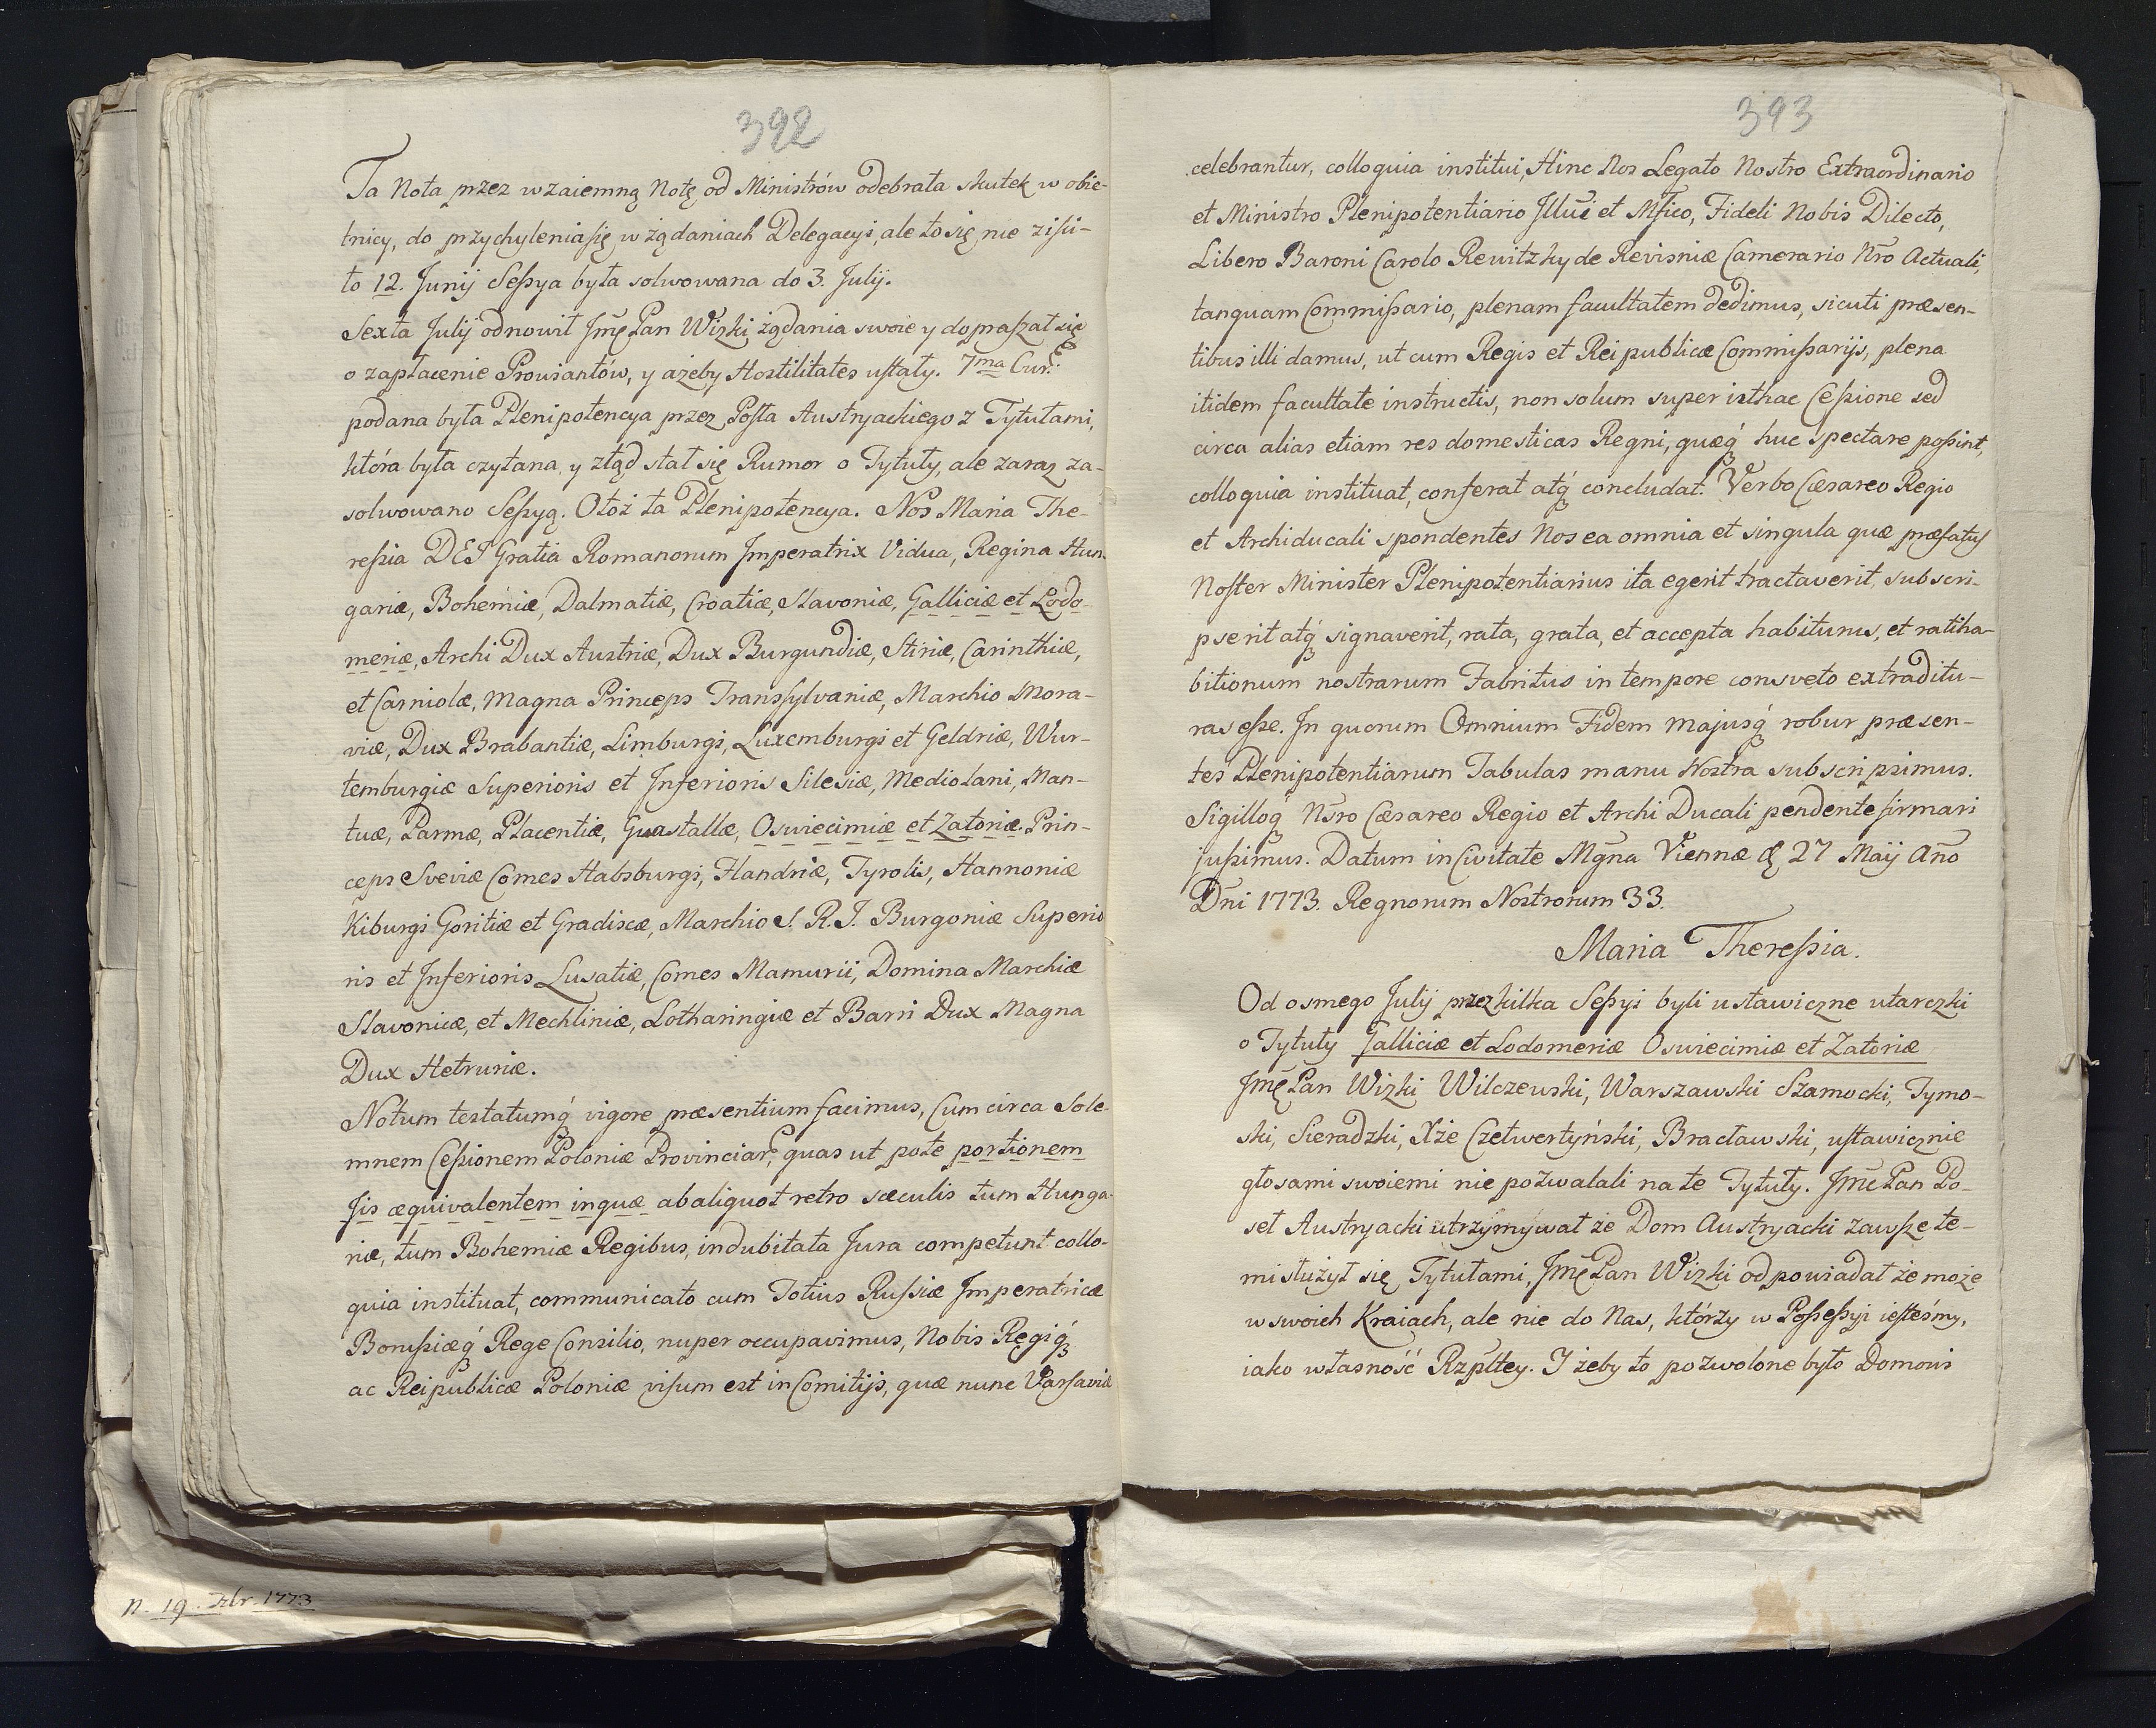 392
Ta Nota przez wzaiemną Notę od Ministrów odebrała skutek w obie-
tnicy, do przychylenia się w żądaniach Delegacyi, ale to się nie ziści-
ło 12. Junij Seſsya była solwowana do 3. Julij.
Sexta Julij odnowił Jmę Pan Wizki żądania swoie y dopraſzał się
o zapłacenie Prowiantów, y ażeby Hostilitates uſtały. 7ma Curę
podana była Plenipotencya przez Poſła Austryackiego z Tytułami,
która była czytana, y ztąd stał się Rumor o Tytuły, ale zaraz za-
solwowano Seſsyą. Otóż ta Plenipotencya. Nos Maria The-
reſsia DEI Gratia Romanorum Imperatrix Vidua, Regina Hun-
gariæ, Bohemiæ, Dalmatiæ, Croatiæ, Slavoniæ, Galliciæ et Lodo-
meriæ, Archi Dux Austriæ, Dux Burgundiæ, Stiriæ, Carinthiæ,
et Carniolæ, Magna Princeps Transſylvaniæ, Marchio Mora-
viæ, Dux Brabantiæ, Limburgi, Luxemburgi et Geldriæ, Wur-
temburgiæ Superioris et Inferioris Silesiæ, Mediolani, Man-
tuæ, Parmæ, Placentiæ, Guastallæ, Oswiecimiæ et Zatoriæ. Prin-
ceps Sveviæ Comes Habsburgi, Flandriæ, Tyrolis, Hannoniæ
Kiburgi Goritiæ et Gradiscæ, Marchio S. R. I. Burgoniæ Superio
ris et Inferioris Lusatiæ, Comes Mamurii, Domina Marchiæ
Slavonicæ, et Mechliniæ, Lotharingiæ et Barri Dux Magna
Dux Hetruriæ.
Notum testatumq́ vigore præsentium facimus, Cum circa Sole-
mnem Ceſsionem Poloniæ Provinciar, quas ut pote portionem
Jis æquivalentem in quæ ab aliquot retro sæculis tum Hunga-
riæ, tum Bohemiæ Regibus, indubitata Jura competunt collo-
quia instituat, communicato cum Totius Ruſsiæ Imperatricæ
Boruſsiæq́ Rege Consilio, nuper occupavimus, Nobis Regiq́
ac Reipublicæ Poloniæ viſum est in Comitijs, quæ nunc Varſaviæ
n. 19. Xbr. 1773
393
celebrantur, colloquia institui, Hinc Nos Legato Nostro Extraordinario
et Ministro Plenipotentiario Jllusi et Mfico, Fideli Nobis Dilecto,
Libero Baroni Carolo Rewitzky de Revisniæ Camerario Nro Actuali,
tanquam Commiſsario, plenam facultatem dedimus, sicuti præsen-
tibus illi damus, ut cum Regis et Reipublicæ Commiſsarijs, plena
itidem facultate instructis, non solum super isthac Ceſsione sed
circa alias etiam res domesticas Regni, quæq́ huc spectare poſsint,
colloquia instituat, conferat atq́ concludat. Verbo Cæsareo Regio
et Archiducali spondentes Nos ea omnia et singula quæ præfatus
Noſter Minister Plenipotentiarius ita egerit tractaverit, subscri-
pserit atq́ signaverit, rata, grata, et accepta habiturus, et ratiha-
bitionum nostrarum Fabritus in tempore consveto extraditu-
ras eſse. In quorum Omnium Fidem majusq́ robur præsen-
tes Plenipotentiarum Tabulas manu Nostra subscripsimus.
Sigilloq́ Nsro Cæsareo Regio et Archi Ducali pendente firmari
juſsimus. Datum in Civitate Mgna Viennæ d 27 Maij Año
Dni 1773. Regnorum Nostrorum 33.
Maria Thereſsia.
Od osmego Julij przez kilka Seſsyi byli ustawiczne utarczki
o Tytuły Galliciæ et Lodomeriæ Oswiecimiæ et Zatoriæ
Jmę Pan Wizki Wilczewski, Warszawski Szamocki, Tymo-
ski, Sieradzki, Xże Czetwertyński, Bracławski, uſtawicznie
głosami swoiemi nie pozwalali na te Tytuły. Jmć Pan Po-
seł Austryacki utrzymywał że Dom Austryacki zawſze te-
mi służył się Tytułami, Jmę Pan Wizki odpowiadał że może
w swoich Kraiach, ale nie do Nas, którzy w Poſseſsyi ieſteśmy,
iako własność Rzpltey. I żeby to pozwolone było Domowi